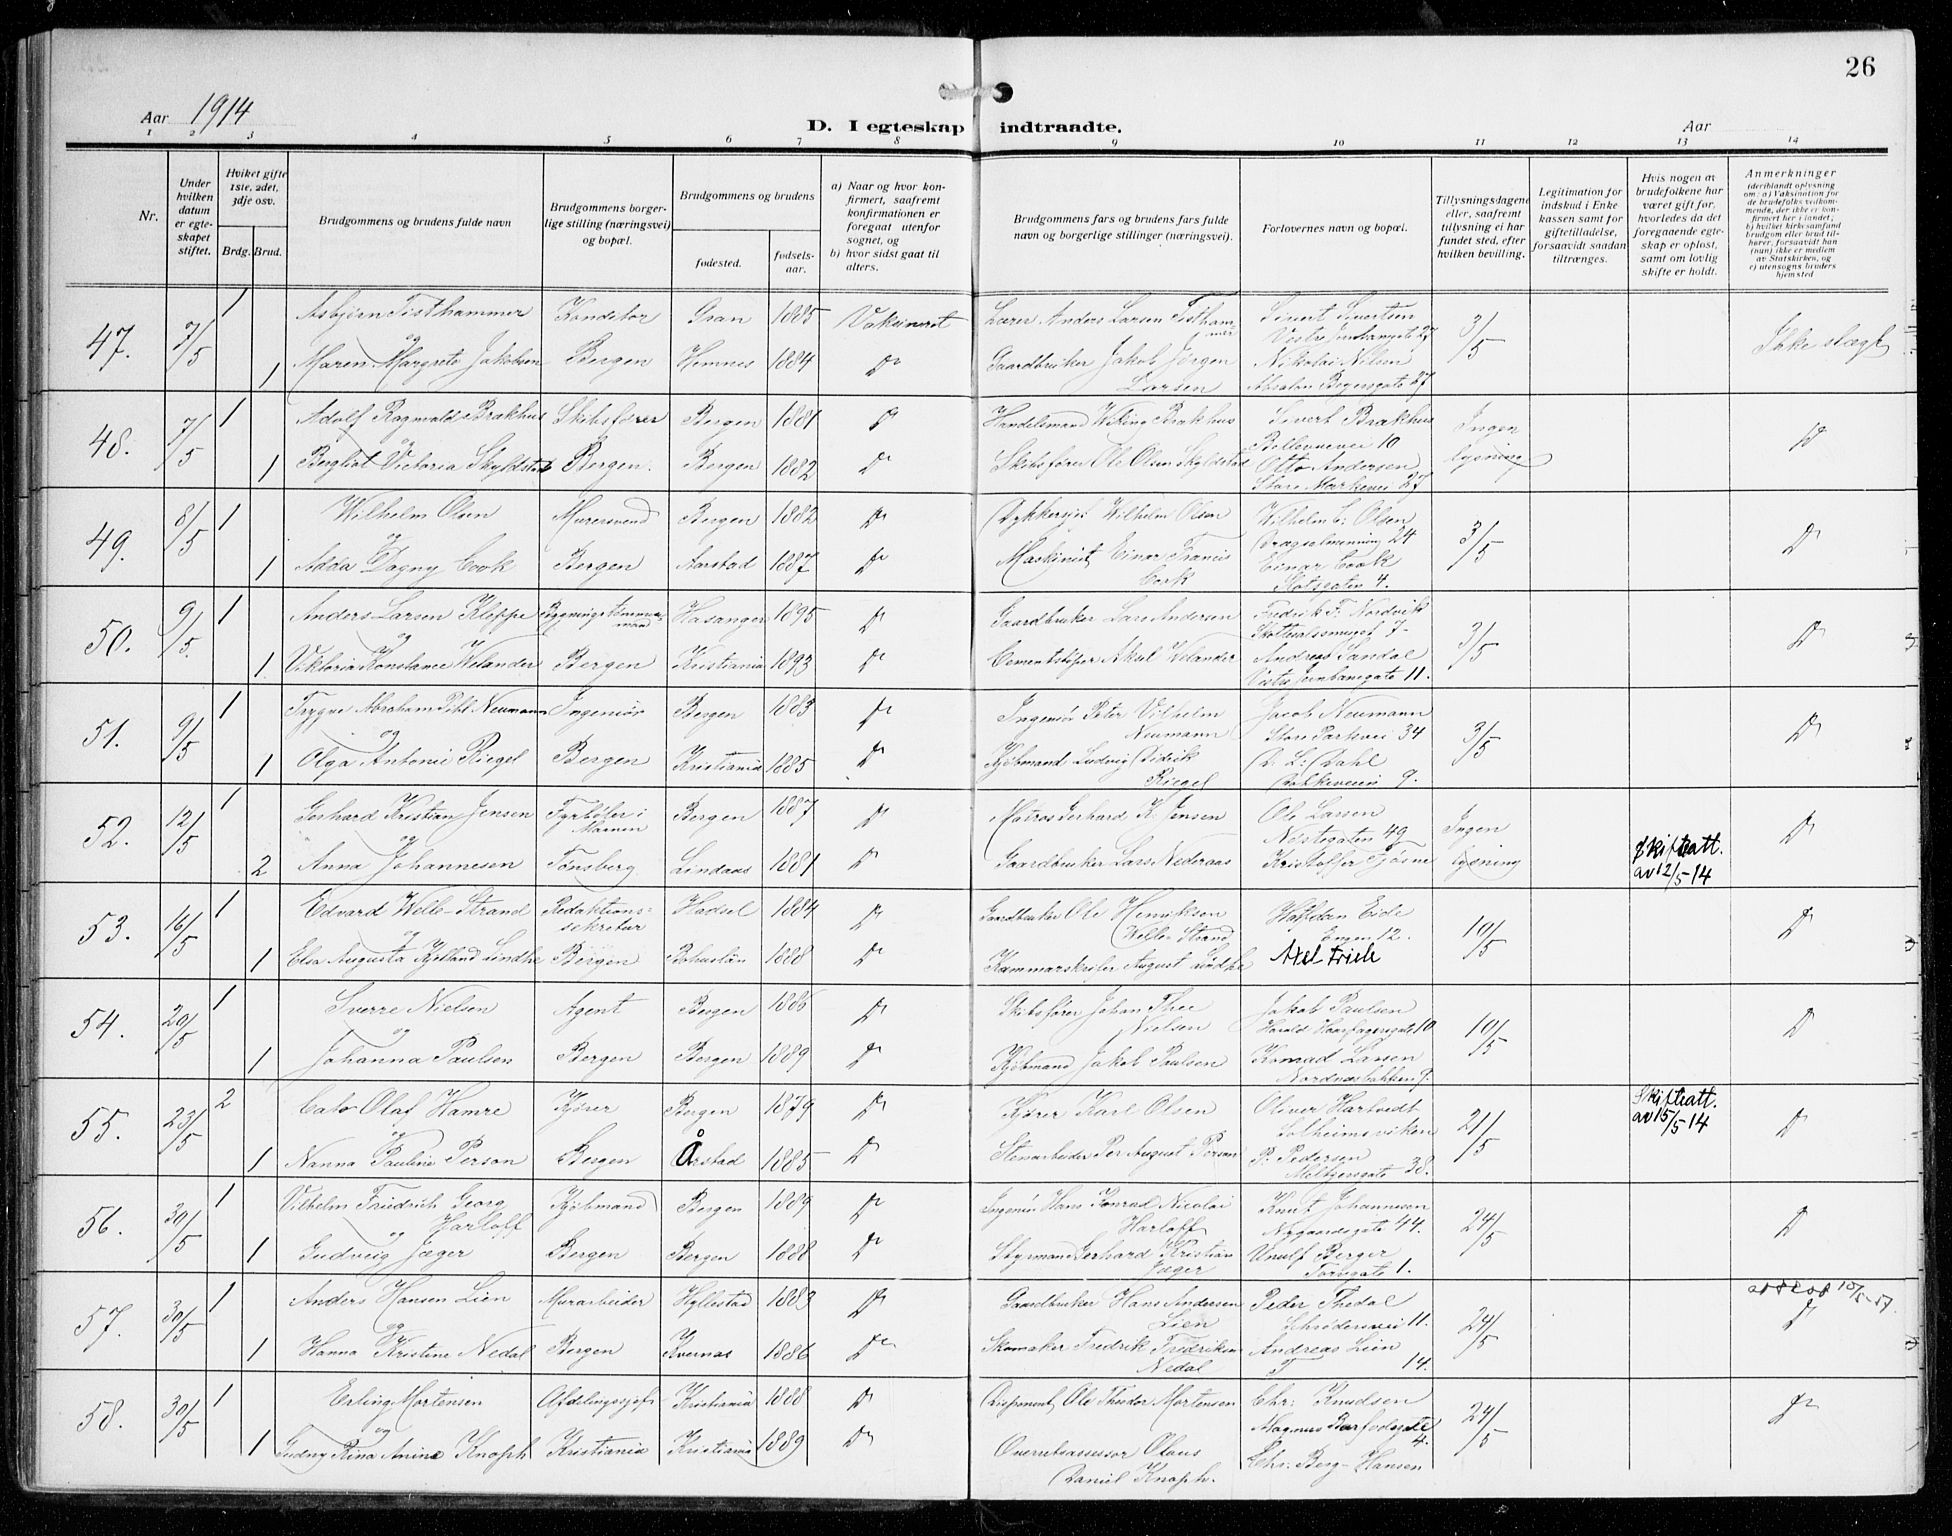 26
Aar 1914
D. I egteskap indtraadte.
Aar
1 2 3 4 5 6 7 8 9 10 11 12 13 14
Nr.
Under hvilken datum er egteskapet stiftet.
Hviket gifte 1ste, 2det, 3dje osv.
Brdg. Brud.
Brudgommens og brudens fulde navn
Brudgommens borgerlige stilling (næringsvei) og bopæl.
Brudgommens og brudens
fødested.
fødselsaar.
a) Naar og hvor konfirmert, saafremt konfirmationen er foregaat utenfor sognet, og
b) hvor sidst gaat til alters.
Brudgommens fars og brudens fars fulde navn og borgerlige stillinger (næringsvei).
Forlovernes navn og bopæl.
Tillysningsdagene eller, saafremt tillysning ei har fundet sted, efter hvilken bevilling.
Legitimation for indskud i Enkekassen samt for giftetilladelse, forsaavidt saadan tiltrænges.
Hvis nogen av brudefolkene har været gift før, hvorledes da det foregaaende egteskap er opløst, samt om lovlig skifte er holdt.
Anmerkninger
(deriblandt oplysning om: a) Vaksination for de brudefolks vedkommende, der ikke er konfirmert her i landet; b) hvilket kirkesamfund brudgom eller brud tilhører, forsaavidt han (hun) ikke er medlem av Statskirken, og c) utensogns bruders hjemsted
47. 7/5 1 Asbjørn Tisthammer Konditor Gran 1885 Vaksineret Lærer Anders Larsen Tisthammer Sivert Sivertsen 3/5 Ikke slægt
og Vestre 27
1 Maren Margrete Jakobsen Bergen Hemnes 1884 Do Gaardbruker Jakob Jørgen Larsen Nikolai Nilsen
Absalon Beyersgate 27
48. 7/5 1 Adolf Ragnvald Brækhus Skibsfører Bergen 1881 Do Handelsmand Wiking Brækhus Sivert Brækhus Ingen lysning Do
og Bellevuevei 10
1 Bergliot Victoria Skyldstad Bergen. Bergen 1882 Do Skibsfører Ole Olsen Skyldstad Otto Andersen
Store Markevei 27
49. 8/5 1 Wilhelm Olsen Murersvend Bergen 1882 Do Wilhelm Olsen Wilhelm C. Olsen 3/5 Do
og 24
1 Adda Dagny Cook Bergen Aarstad 1887 Do Maskinist Einar Francis Cook Einar Cook
4.
50. 9/5. 1 Anders Larsen Kleppe Bygningstømmermand 1895 Do Gaardbruker Lars Andersen Fredrik F. Nordvik 3/5 Do
og 7-
1. Viktoria Konstance Welander Bergen Kristiania 1893 Do Cementstøper Aksel Welander Andreas Sandal
11.
51. 9/5 1 Trygve Abraham Pihl Neumann Ingeniør Bergen 1883 Do Ingeniør Peter Vilhelm Neumann Jacob Neumann 3/5 Do
og Store Parkvei 34
1 Olga Antonie Riegel Bergen Kristiania 1885 Do Kjøbmand Ludvig Didrik Riegel D. L. Dahl
Kalkeveien 9.
52. 12/5 1 Gerhard Kristian Jensen Fyrbøter i Marinen Bergen 1887 Do Matros Gerhard K. Jensen Ole Larsen Ingen lysning Do
og Nøstegaten 49
2 Anna Johannesen Tønsberg Lindaas 1881 Do Gaardbruker Lars Nederaas Kristoffer Tjøsne Skifteatt. av 12/5-14
53. 16/5 1 Edvard Welle-Strand Redaktionssekretær Hadsel 1884 Do Gaardbruker Ole Henriksen Welle-Strand Halfdan Eide 10/5 Do
og Engen 12.
1 Elsa Augusta Kjelland Lindhe Bergen Bohuslän 1888 Do Kammarskrifer August Lindhe Axel Friele
54. 20/5 1 Sverre Nielsen Agent Bergen 1886 Do Skibsfører Johan Thee Nielsen Jakob Paulsen 10/5 Do
og Harald Haarfagersgate 10
1 Johanna Paulsen Bergen Bergen 1889 Do Kjøbmand Jakob Paulsen Konrad Larsen
Nordnæsbakken 9.
55. 23/5 2 Cato Olaf Hamre Kjører Bergen 1879 Do Kjører Karl Olsen Oliver Hartvedt 21/5 Skifteatt. av 15/5-14 Do
og Solheimsviken
1 Nanna Pauline Person Bergen Årstad 1885 Do Stenarbeider Per August Person P. Pedersen
Møhlenprisgate 38.
56. 30/5 1 Vilhelm Friedrich Georg Harloff Kjøbmand Bergen 1889 Do Ingeniør Hans Konrad Nicolai Harloff Knut Johannesen 24/5 Do
og Nygaardsgate 44.
1 Gudveig Jæger Bergen Bergen 1888 Do Styrmand Gerhard Kristian Jæger Unulf Berger
Torvgate 1.
57. 30/5 1 Anders Hansen Lien Murarbeider Hyllestad 1883 Do Gaardbruker Hans Andersen Lien Peder Thedal 24/5 10/5-57. Do
og 11.
1 Hanna Kristine Nedal Bergen Kvernes 1886 Do Skomaker Fredrik Fredriksen Nedal Andreas Lien
14.
58. 30/5 1 Erling Mortensen Afdelingschef Kristiania 1888 Do Disponent Ole Theodor Mortensen Chr. Knudsen 24/5 Do
og Magnus Barfodsgate 4.
1 Gudny Rina Anine Knoph Kristiania Kristiania 1889 Do Overretsassessor Olaus Daniel Knoph. Chr. Berg-Hansen